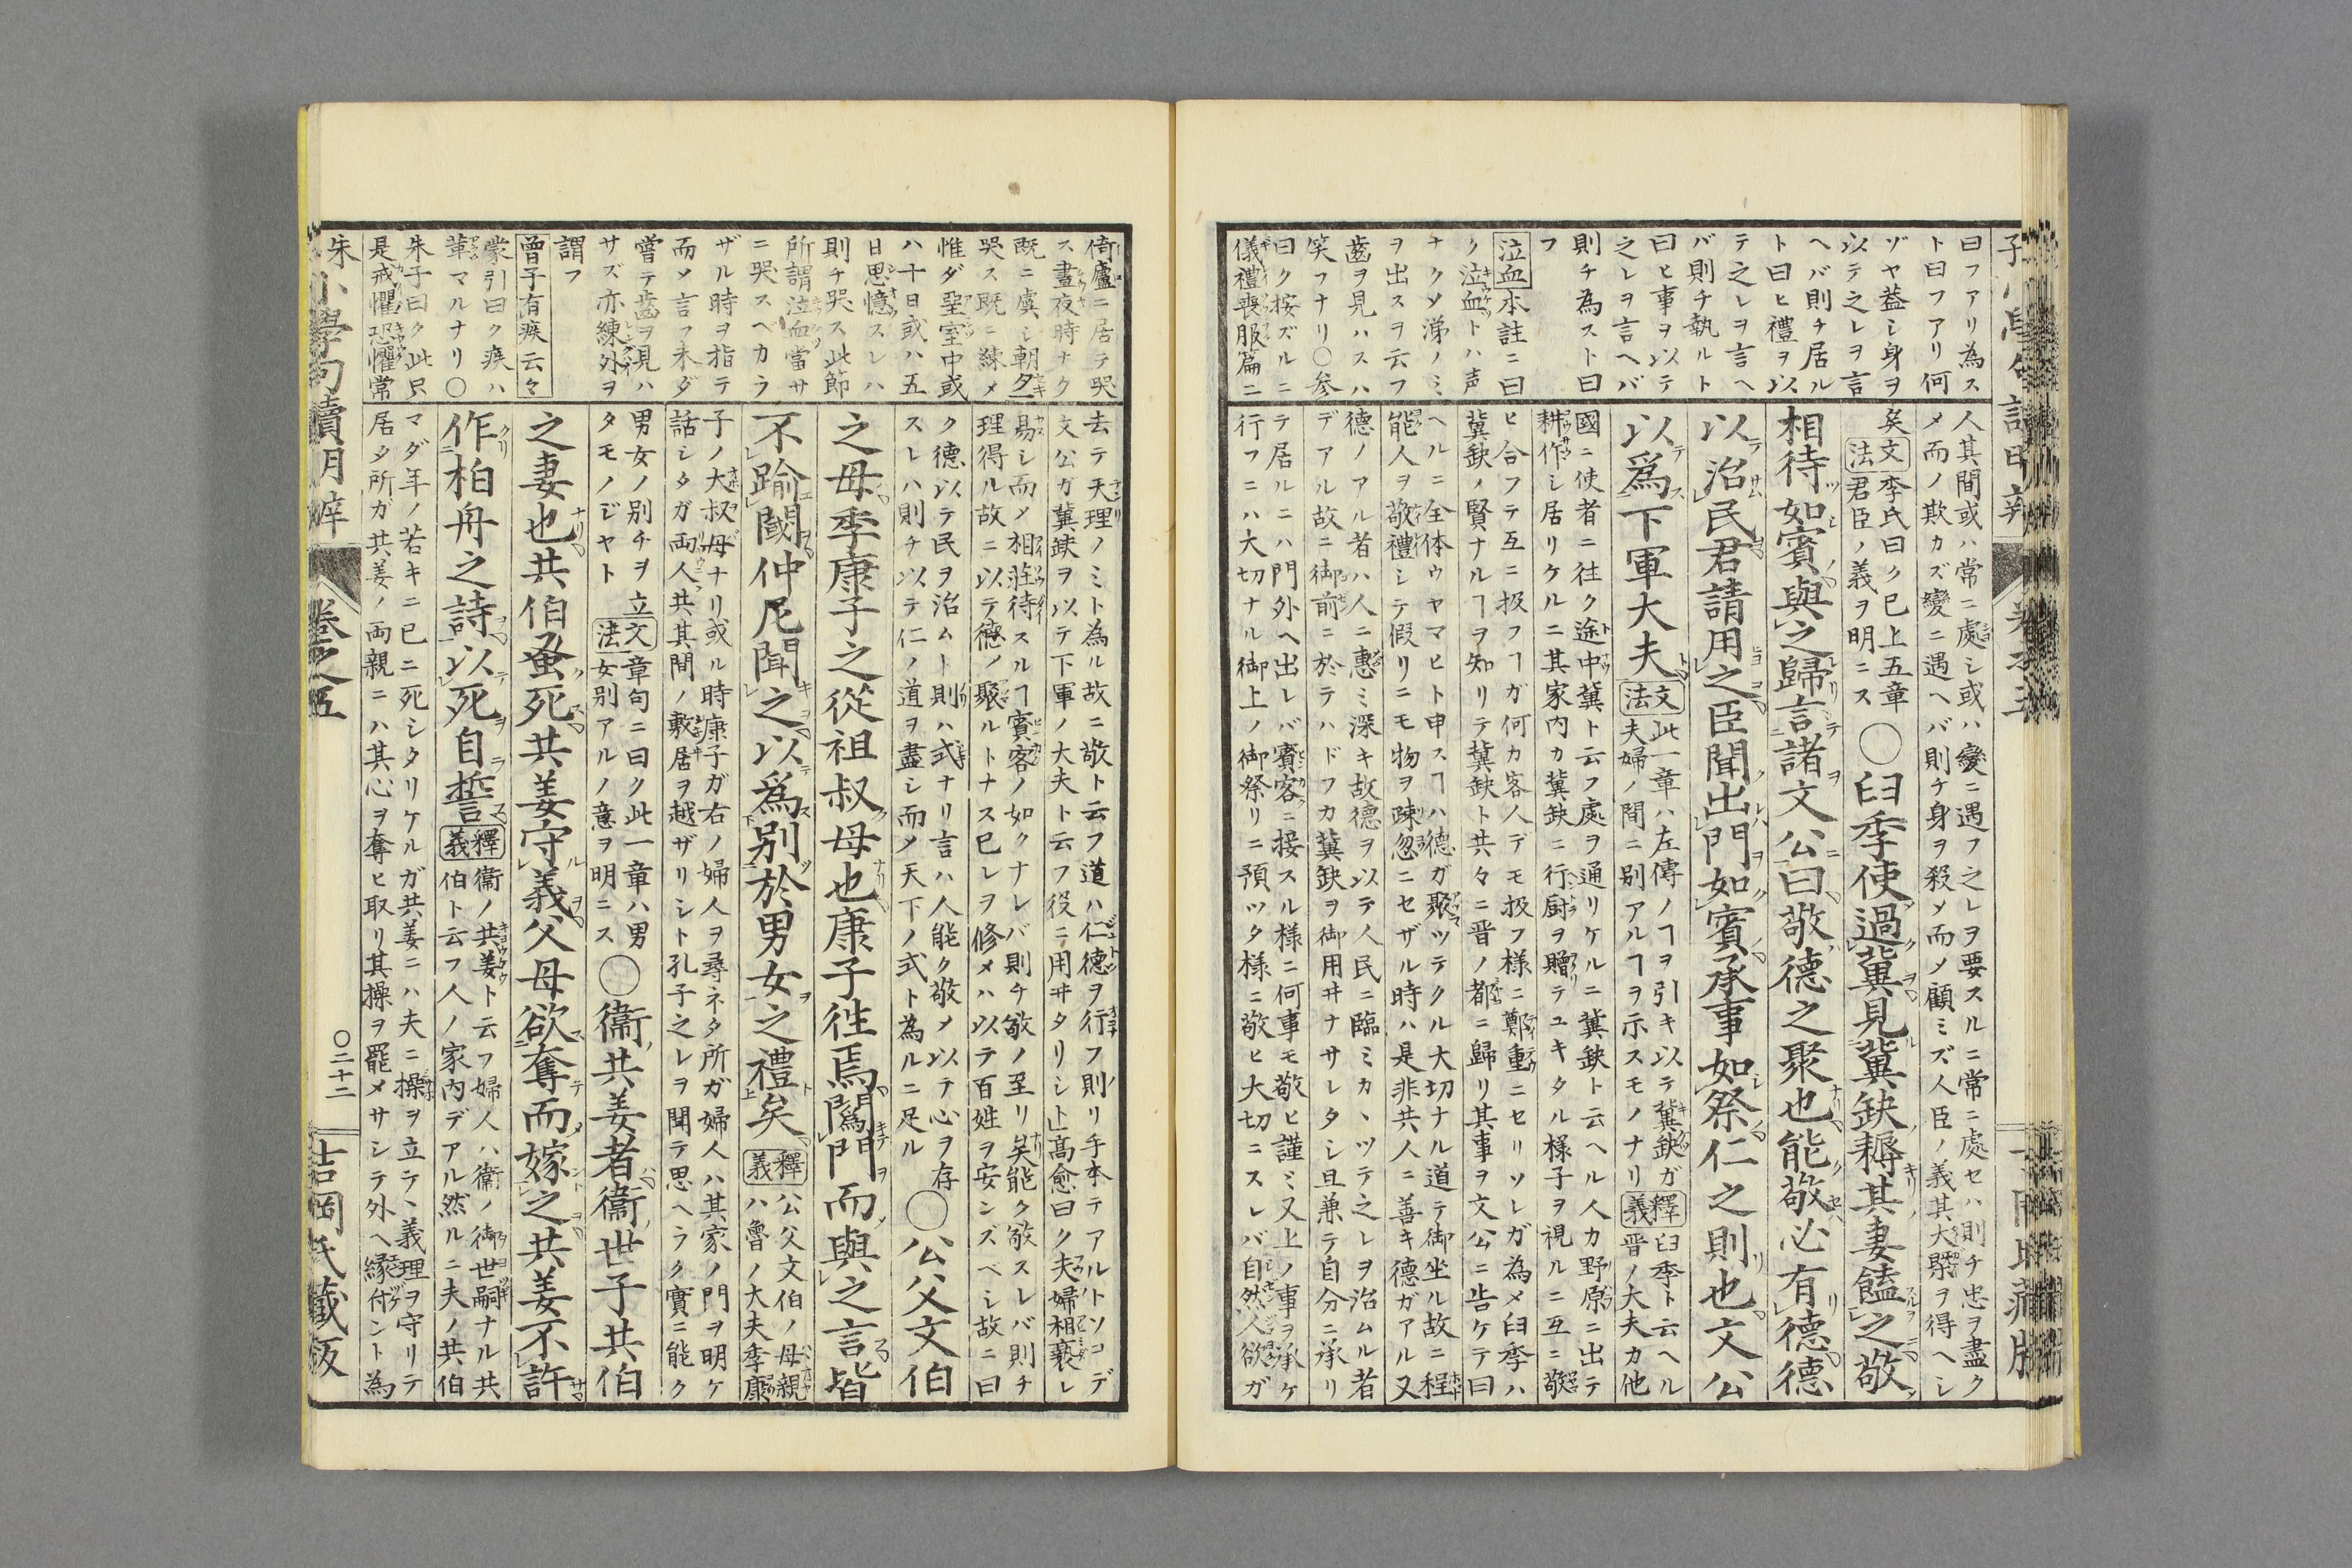 曰フアリ為ス
ト曰フアリ何
ゾヤ蓋シ身ヲ
以テ之レヲ言
ヘバ則チ居ル
ト曰ヒ禮ヲ以
テ之レヲ言ヘ
バ則チ執ルト
曰ヒ事ヲ以テ
之レヲ言ヘバ
則チ為スト曰
フ
泣血本註ニ曰
ク泣血トハ声
ナクメ涕ノミ
ヲ出スヲ云フ
齒ヲ見ハスハ
笑フナリ○参
曰ク按ズルニ
儀禮喪服篇ニ
人其間或ハ常ニ處シ或ハ變ニ遇フ之レヲ要スルニ常ニ處セハ則チ忠ヲ盡ク
メ而ノ欺カズ變ニ遇ヘバ則チ身ヲ殺メ而メ顧ミズ人臣ノ義其大槩ヲ得ヘシ
矣文法李氏曰ク已上五章君臣ノ義ヲ明ニス○臼季使過冀見冀缺耨其妻饁之敬
相待如賓與之歸言諸文公曰敬德之聚也能敬必有德德
以治民君請用之臣聞出門如賓承事如祭仁之則也文公
以爲下軍大夫文法此一章ハ左傳ノヿヲ引キ以テ冀缺ガ夫婦ノ間ニ別アルヿヲ示スモノナリ釋義臼季ト云ヘル晋ノ大夫カ他
國ニ使者ニ往ク途中冀ト云フ處ヲ通リケルニ冀缺ト云ヘル人カ野原ニ出テ
耕作シ居リケルニ其家内カ冀缺ニ行厨ヲ贈テユキタル様子ヲ視ルニ互ニ敬
ヒ合フテ互ニ扱フヿガ何カ客人デモ扱フ様ニ鄭重ニセリソレガ為メ臼季ハ
冀缺ノ賢ナルヿヲ知リテ冀缺ト共々ニ晋ノ都ニ歸リ其事ヲ文公ニ告ケテ曰
ヘルニ全体ウヤマヒト申スヿハ德ガ聚ツテクル大切ナル道テ御坐ル故ニ程
能人ヲ敬禮シテ假リニモ物ヲ疎忽ニセザル時ハ是非共人ニ善キ德ガアル又
德ノアル者ハ人ニ惠ミ深キ故德ヲ以テ人民ニ臨ミカヽツテ之レヲ治ムル者
デアル故ニ御前ニ於テハドフカ冀缺ヲ御用ヰナサレタシ且兼テ自分ニ承リ
テ居ルニハ門外ヘ出レバ賓客ニ接スル様ニ何事モ敬ヒ謹ミ又上ノ事ヲ承ケ
行フニハ大切ナル御上ノ御祭リニ預ツタ様ニ敬ヒ大切ニスレバ自然人欲ガ
倚廬ニ居テ哭
ス晝夜時ナク
既ニ虞シ朝夕
哭ス既ニ練メ
惟ダ堊室中或
ハ十日或ハ五
日思憶スレハ
則チ哭ス此節
所謂泣血當サ
ニ哭スベカラ
ザル時ヲ指テ
而メ言フ未ダ
嘗テ齒ヲ見ハ
サズ亦練外ヲ
謂フ
曾子有疾云々
蒙引曰ク疾ハ
革マルナリ○
朱子曰ク此只
是戒懼恐懼常
去テ天理ノミト為ル故ニ敬ト云フ道ハ仁德ヲ行フ則リ手本テアルトソコデ
文公ガ冀缺ヲ以テ下軍ノ大夫ト云フ役ニ用ヰタリシト」高愈曰ク夫婦相褻レ
易シ而メ相莊待スルヿ賓客ノ如クナレバ則チ敬ノ至リ矣能ク敬スレバ則チ
理得ル故ニ以テ德ノ聚ルトナス已レヲ修メハ以テ百姓ヲ安ンズベシ故ニ曰
ク德以テ民ヲ治ムト則ハ式ナリ言ハ人能ク敬メ以テ心ヲ存
スレハ則チ以テ仁ノ道ヲ盡シ而メ天下ノ式ト為ルニ足ル○公父文伯
之母季康子之從祖叔母也康子往焉䦱門而與之言皆
不踰閾仲尼聞之以爲別於男女之禮矣釋義公父文伯ノ母親ハ魯ノ大夫季康
子ノ大叔母ナリ或ル時康子ガ右ノ婦人ヲ尋ネタ所ガ婦人ハ其家ノ門ヲ明ケ
話シタガ両人共其間ノ敷居ヲ越ザリシト孔子之レヲ聞テ思ヘラク實ニ能ク
男女ノ別チヲ立タモノジヤト文法章句ニ曰ク此一章ハ男女別アルノ意ヲ明ニス○衞共姜者衞世子共伯
之妻也共伯蚤死共姜守義父母欲奪而嫁之共姜不許
作柏舟之詩以死自誓釋義衞ノ共姜ト云フ婦人ハ衞ノ御世嗣ナル共伯ト云フ人ノ家内デアル然ルニ夫ノ共伯
マダ年ノ若キニ已ニ死シタリケルガ共姜ニハ夫ニ操ヲ立テヽ義理ヲ守リテ
居タ所ガ共姜ノ両親ニハ其心ヲ奪ヒ取リ其操ヲ罷メサシテ外ヘ縁付ント為
朱小學句讀明辨 卷之五 ○二十二 吉岡氏藏版